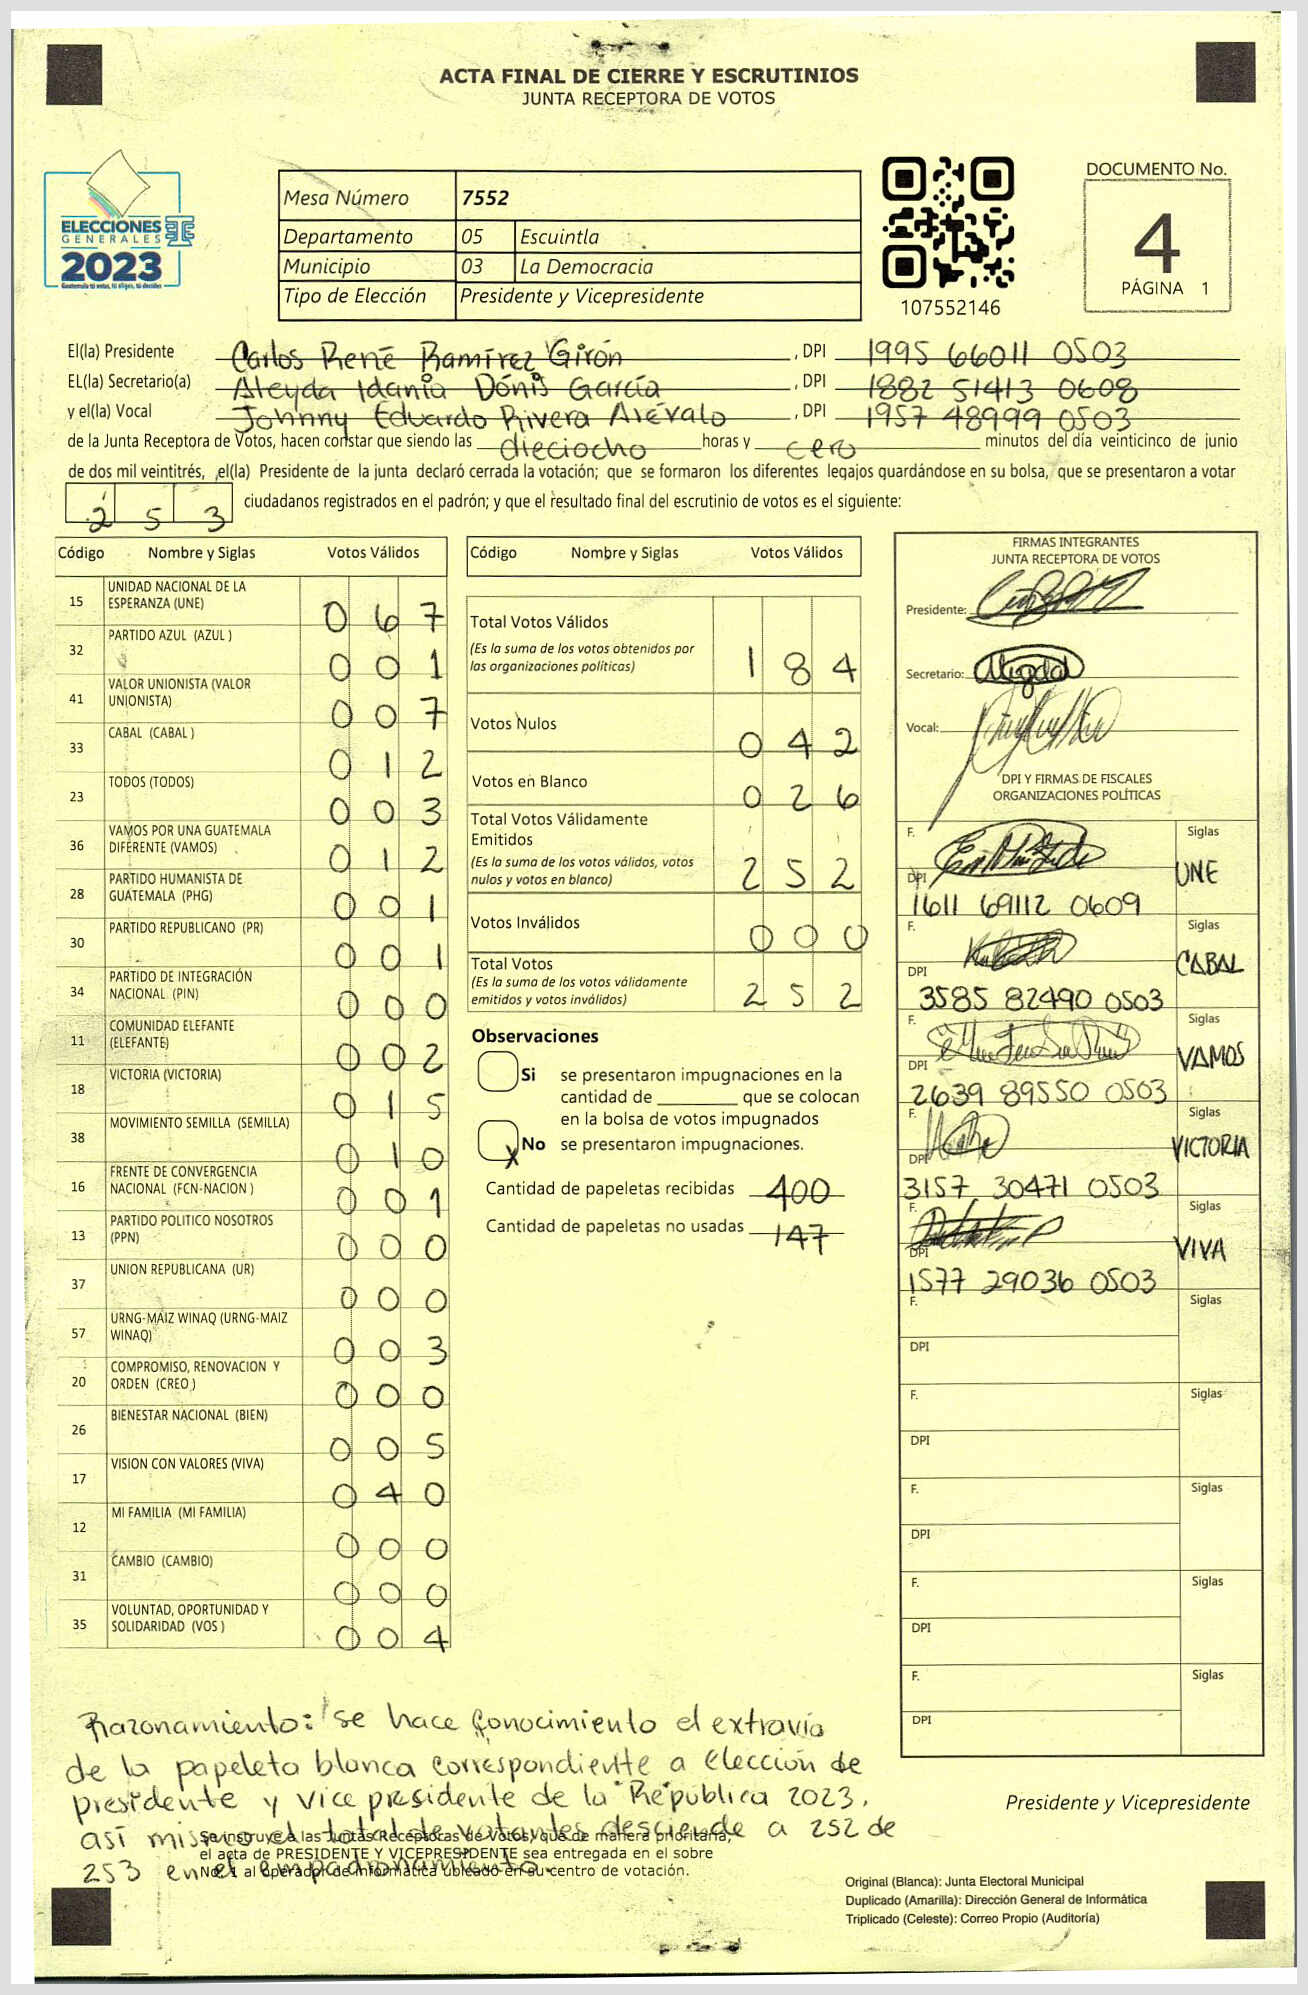 ACTA FINAL DE CIERRE Y ESCRUTINIOS
JUNTA RECEPTORA DE VOTOS
ELECCIONES
GENERALES
2023
Guatemala tú votas, tú eliges, tú decides
Mesa Número 7552
Departamento 05 Escuintla
Municipio 03 La Democracia
Tipo de Elección Presidente y Vicepresidente
107552146
DOCUMENTO No.
4
PÁGINA 1
El(la) Presidente Carlos René Ramírez Girón , DPI 1995 66011 0503
EL(la) Secretario(a) Aleyda Idania Dónis García , DPI 1882 51413 0608
y el(la) Vocal Johnny Eduardo Rivera Arévalo , DPI 1957 48999 0503
de la Junta Receptora de Votos, hacen constar que siendo las dieciocho horas y cero minutos del día veinticinco de junio
de dos mil veintitrés, el(la) Presidente de la junta declaró cerrada la votación; que se formaron los diferentes legajos guardándose en su bolsa, que se presentaron a votar
2 5 3 ciudadanos registrados en el padrón; y que el resultado final del escrutinio de votos es el siguiente:
Código Nombre y Siglas Votos Válidos
15 UNIDAD NACIONAL DE LA ESPERANZA (UNE) 0 6 7
32 PARTIDO AZUL (AZUL ) 0 0 1
41 VALOR UNIONISTA (VALOR UNIONISTA) 0 0 7
33 CABAL (CABAL ) 0 1 2
23 TODOS (TODOS) 0 0 3
36 VAMOS POR UNA GUATEMALA DIFERENTE (VAMOS) 0 1 2
28 PARTIDO HUMANISTA DE GUATEMALA (PHG) 0 0 1
30 PARTIDO REPUBLICANO (PR) 0 0 1
34 PARTIDO DE INTEGRACIÓN NACIONAL (PIN) 0 0 0
11 COMUNIDAD ELEFANTE (ELEFANTE) 0 0 2
18 VICTORIA (VICTORIA) 0 1 5
38 MOVIMIENTO SEMILLA (SEMILLA) 0 1 0
16 FRENTE DE CONVERGENCIA NACIONAL (FCN-NACION ) 0 0 1
13 PARTIDO POLITICO NOSOTROS (PPN) 0 0 0
37 UNION REPUBLICANA (UR) 0 0 0
57 URNG-MAIZ WINAQ (URNG-MAIZ WINAQ) 0 0 3
20 COMPROMISO, RENOVACION Y ORDEN (CREO ) 0 0 0
26 BIENESTAR NACIONAL (BIEN) 0 0 5
17 VISION CON VALORES (VIVA) 0 4 0
12 MI FAMILIA (MI FAMILIA) 0 0 0
31 CAMBIO (CAMBIO) 0 0 0
35 VOLUNTAD, OPORTUNIDAD Y SOLIDARIDAD (VOS ) 0 0 4
Código Nombre y Siglas Votos Válidos
Total Votos Válidos
(Es la suma de los votos obtenidos por
las organizaciones políticas) 1 8 4
Votos Nulos 0 4 2
Votos en Blanco 0 2 6
Total Votos Válidamente
Emitidos
(Es la suma de los votos válidos, votos
nulos y votos en blanco) 2 5 2
Votos Inválidos 0 0 0
Total Votos
(Es la suma de los votos válidamente
emitidos y votos inválidos) 2 5 2
Observaciones
Si se presentaron impugnaciones en la
cantidad de ________ que se colocan
en la bolsa de votos impugnados
X No se presentaron impugnaciones.
Cantidad de papeletas recibidas 400
Cantidad de papeletas no usadas 147
FIRMAS INTEGRANTES
JUNTA RECEPTORA DE VOTOS
Presidente:
Secretario:
Vocal:
DPI Y FIRMAS DE FISCALES
ORGANIZACIONES POLÍTICAS
F. Siglas
UNE
DPI
1611 69112 0609
F. Siglas
CABAL
DPI
3585 82490 0503
F. Siglas
VAMOS
DPI
2639 89550 0503
F. Siglas
VICTORIA
DPI
3157 30471 0503
F. Siglas
VIVA
DPI
1577 29036 0503
F. Siglas
DPI
F. Siglas
DPI
F. Siglas
DPI
F. Siglas
DPI
F. Siglas
DPI
Razonamiento: se hace conocimiento el extravío
de la papeleta blanca correspondiente a elección de
presidente y vice presidente de la República 2023,
así mismo el total de votantes desciende a 252 de
253 en el empadronamiento.
Se instruye a las Juntas Receptoras de Votos, que de manera prioritaria,
el acta de PRESIDENTE Y VICEPRESIDENTE sea entregada en el sobre
No. 1 al operador de informática ubicado en su centro de votación.
Presidente y Vicepresidente
Original (Blanca): Junta Electoral Municipal
Duplicado (Amarilla): Dirección General de Informática
Triplicado (Celeste): Correo Propio (Auditoría)